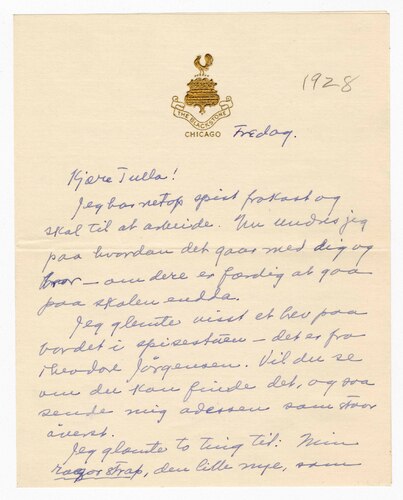 1928
THE BLACKSTONE
CHICAGO
Fredag.
Kjære Tulla!
Jeg har netop spist frokost og
skal til at arbeide. Nu undres jeg
paa hvordan det gaar med dig og
bror – om dere er færdig at gaa
paa skolen endda.
Jeg glemte visst et brev paa
bordet i spisestuen – det er fra
Theodore Jörgensen. Vil du se
om du kan finde det, og saa
sende mig adressen som staar
överst.
Jeg glemte to ting til: Min
razor strap, den lille nye, som